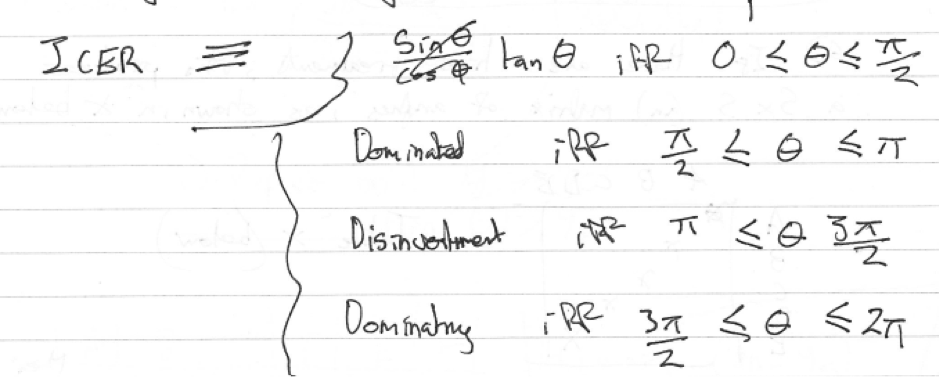 ICER ≡ { tan θ iff 0 ≤ θ ≤ π/2
Dominated iff π/2 ≤ θ ≤ π
Disinvestment iff π ≤ θ 3π/2
Dominating iff 3π/2 ≤ θ ≤ 2π